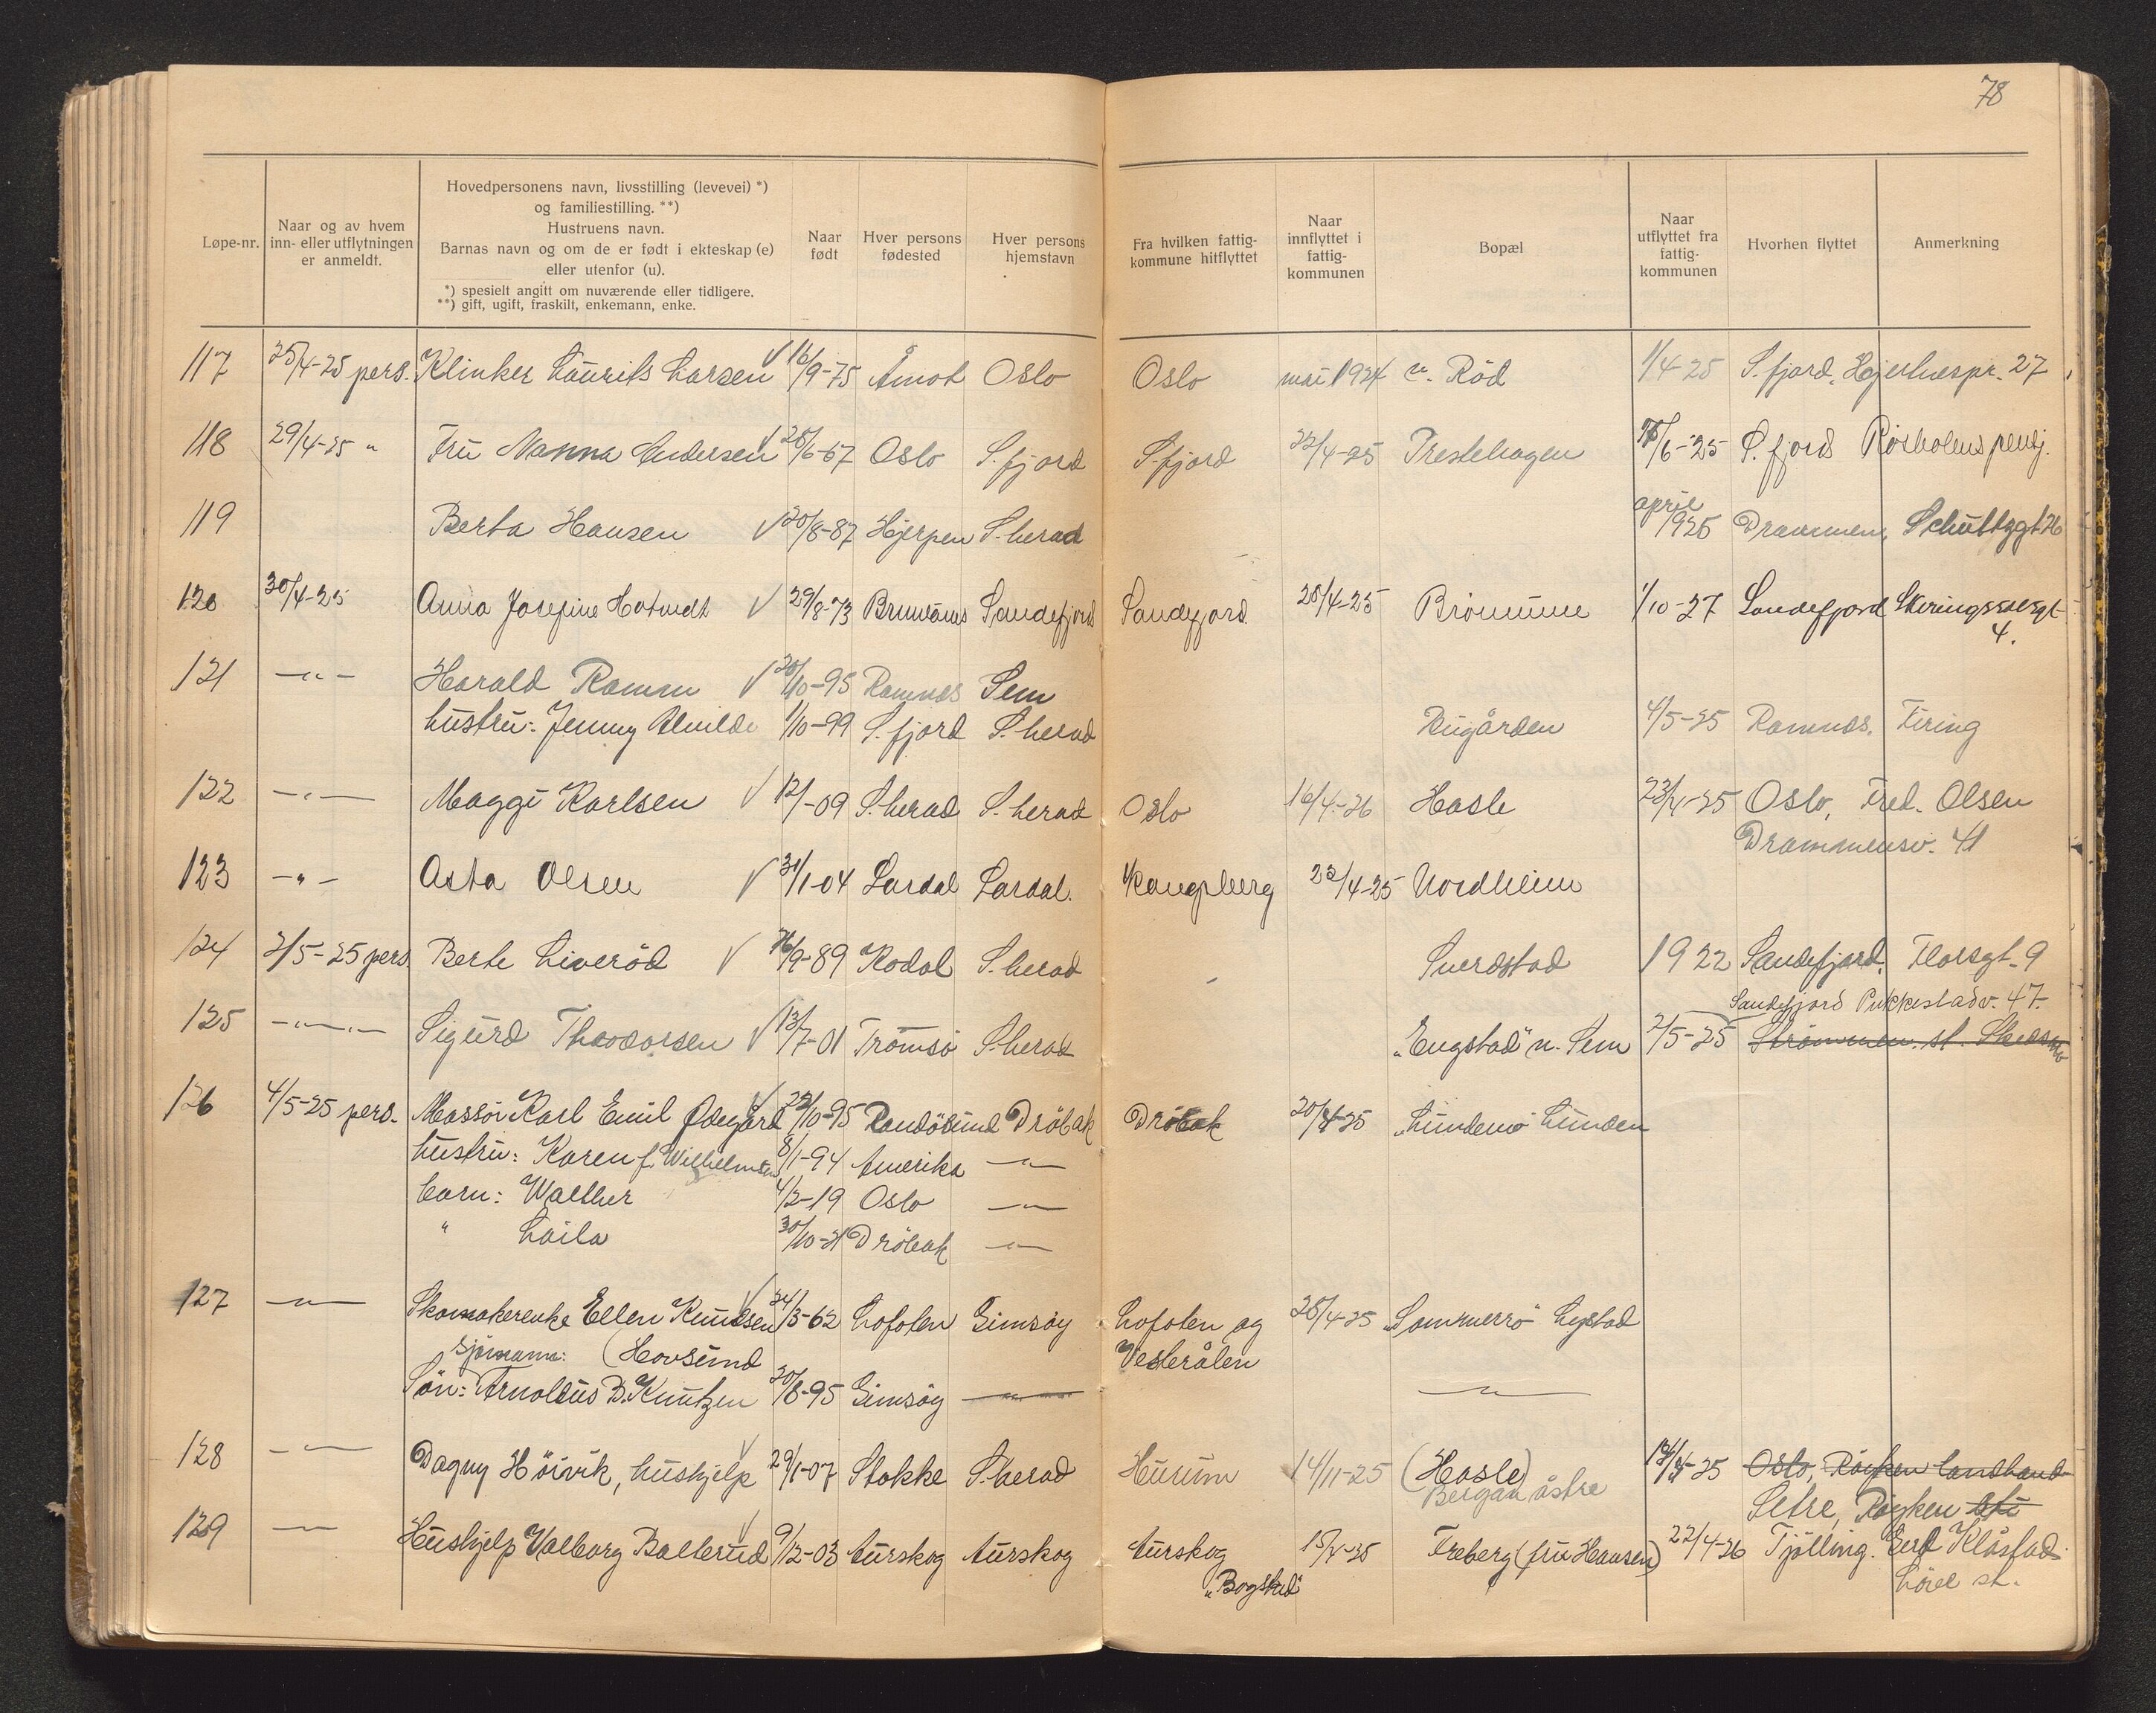 78
Løpe-nr.
Naar og av hvem
inn- eller utflytningen
er anmeldt.
Hovedpersonens navn, livsstilling (levevei) *)
og familiestilling. **)
Hustruens navn.
Barnas navn og om de er født i ekteskap (e)
eller utenfor (u).
*) spesielt angitt om nuværende eller tidligere.
**) gift, ugift, fraskilt, enkemann, enke.
Naar
født
Hver persons
fødested
Hver persons
hjemstavn
Fra hvilken fattig-
kommune hitflyttet
Naar
innflyttet i
fattig-
kommunen
Bopæl
Naar
utflyttet fra
fattig-
kommunen
Hvorhen flyttet
Anmerkning
117 25/4-25 pers. Klinker Laurits Larsen √ 16/9-75 Åmot Oslo Oslo mai 1924 v. Röd 1/4-25 S.fjord, Hjertnespr. 27
118 29/4-25 " Fru Nanna Andersen √ 28/6-67 Oslo S.fjord S.fjord 22/4-25 Prestehagen /6-25 S.fjord pensj.
119 Berta Hansen √ 20/8-87 Hjerpen S.herad april 1925 Drammen, Schultzgt 26
120 30/4-25 Anna Josefine Hotvedt √ 29/8-73 Brunlanes Sandefjord Sandefjord 28/4-25 Brömmme 1/10-27 Sandefjord Skiringssalsgt
4.
121 -"- Harald Ramm √ 20/10-95 Ramnes Sem
hustru: Jenny Alvilde 1/10-99 S.fjord S.herad Bugården 4/5-25 Ramnes. Firing
122 -"- Maggi Karlsen √ 12/-09 S.herad S.herad Oslo 16/4-26 Hasle 23/4-25 Oslo, Fred. Olsen
Drammensv. 41
123 -"- Asta Olsen √ 31/1-04 Lardal Lardal. Kongsberg 23/4-25 Nordheim
124 2/5-25 pers. Berte Liveröd √ 16/9-89 Kodal S.herad Sverdstad 1922 Sandefjord. Florsgt. 9
Sandefjord Pukkestadv. 47
125 -"- Sigurd Theodorsen √ 13/7-01 Tromsö S.herad „Engstad" v. Sem 2/5-25 Strömmen st. Skedsmo
126 4/5-25 pers. Massör Karl Emil Ødegård √ 22/10-95 Randösund Dröbak Dröbak 20/4-25 „Lundemo" Lunden
hustru: Karen f. Wilhelmsen 8/1-94 Amerika -"-
barn: Walther 4/2-19 Oslo -"-
" Laila 30/10-21 Dröbak -"-
127 -"- Skomakerenke Ellen Knudsen √ 24/3-62 Lofoten Gimsöy Lofoten og 28/4-25 „Sommerro" Lystad
sjömann: (Hovsund Vesterålen
Sön: Arnoldus B. Knutzen 20/8-95 Gimsöy -"- -"-
128 -"- Dagny Höivik, hushjelp √ 29/1-07 Stokke S.herad Hurum 14/11-25 (Hasle) /4-25 Oslo, Röyken landhand
Bergan östre Setre, Röyken
129 -"- Hushjelp Valborg Ballerud √ 9/12-03 Aurskog Aurskog Aurskog 15/4-25 Freberg (fru Hansen) 22/4-26 Tjölling. Klåstad
„Bogstad" st.